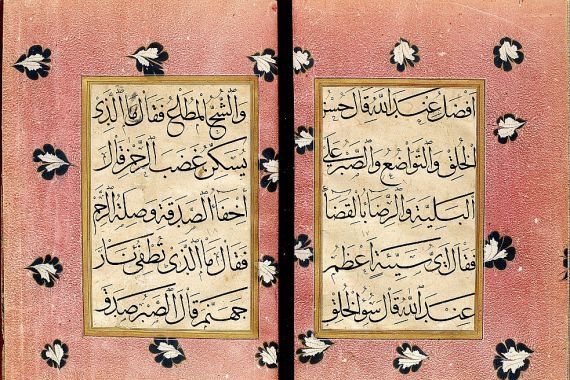 افضل عند الله قال حسن
الخلق والتواضع والصبر على
البلية والرضا بالقضا
فقال اى سيئة اعظم
عند الله قال سو الخلق
والشح المطاع فقال ما الذى
يسكن غضب الرحمن قال
اخفا الصدقة وصلة الرحم
فقال ما الذى تطفى نار
جهنم قال الصبر صدق